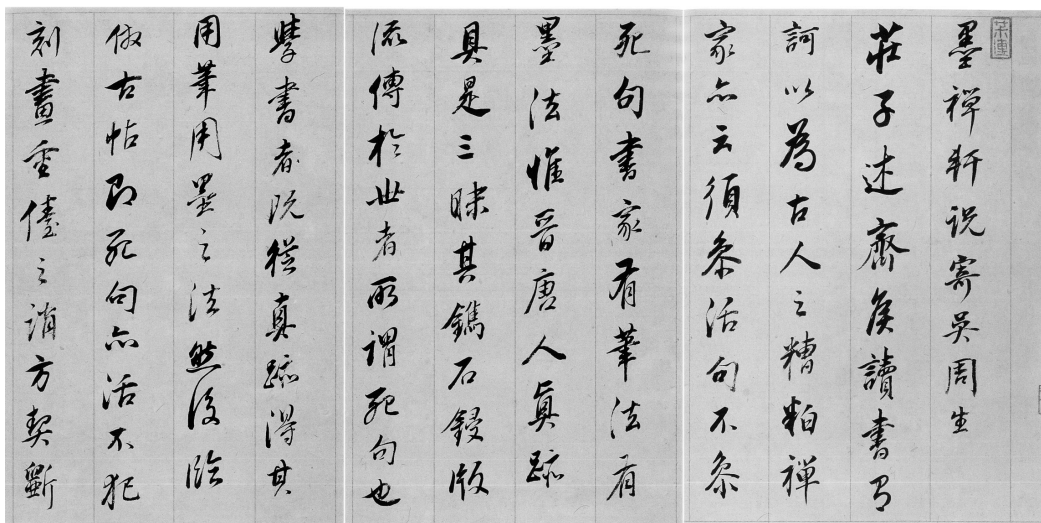 墨禪軒說寄吳周生
莊子述齊侯讀書有
訶以為古人之糟粕禪
家亦云須參活句不參
死句書家有筆法有
墨法惟晉唐人真跡
具是三昧其鐫石鋟版
流傳於世者所謂死句也
學書者既從真跡得其
用筆用墨之法然後臨
倣古帖即死句亦活不犯
刻畫重儓之誚方契斲